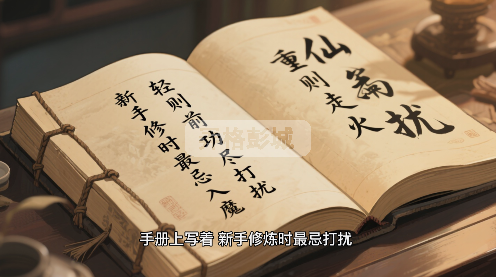 仙扰
重则走火
轻则前功尽打扰
新手修时最忌入魔
格彭城
手册上写着 新手修炼时最忌打扰